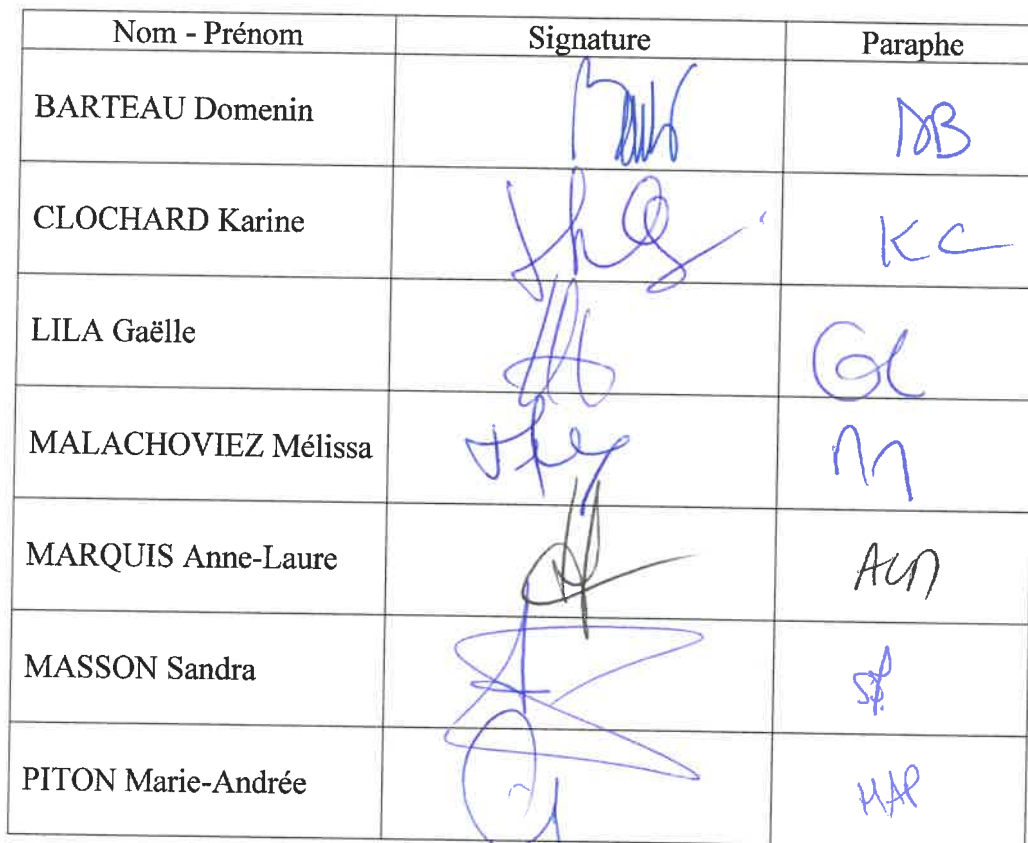 Nom - Prénom Signature Paraphe
BARTEAU Domenin DB
CLOCHARD Karine KC
LILA Gaëlle GL
MALACHOVIEZ Mélissa
MARQUIS Anne-Laure ALM
MASSON Sandra
PITON Marie-Andrée MAP